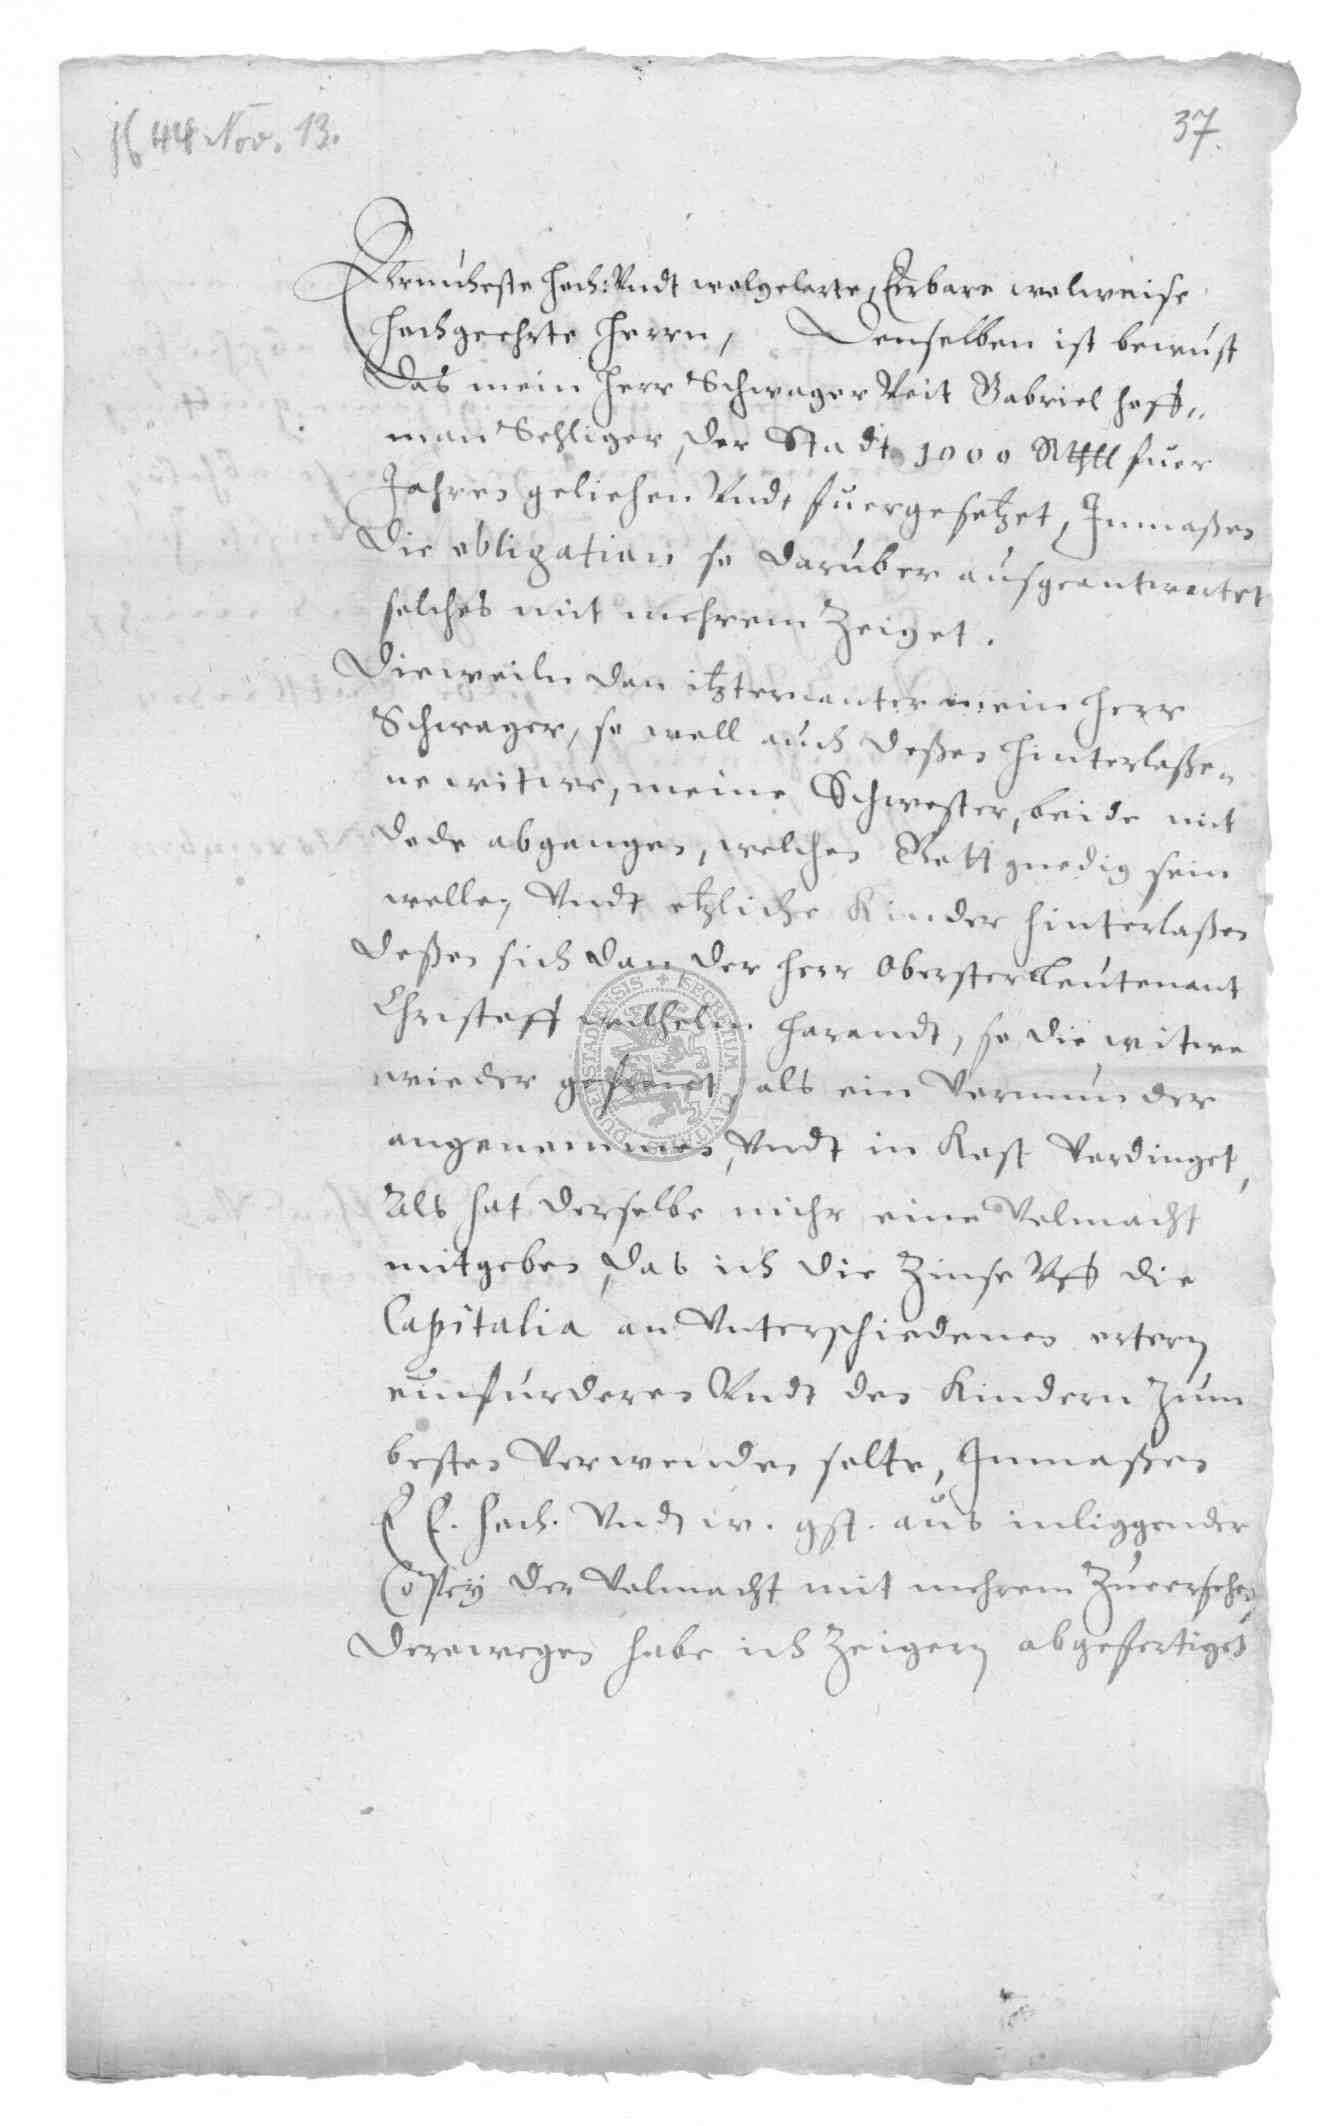 1644 Nov. 13.
37.
Ehrnueheste hoch: Vndt wolgelarte, Erbare wolweise
hochgeehrte Herrn, Denselben ist bewust
Das mein Herr Schwager Veit Gabriel hoff„
man Sehliger, der Stadt 1000 Rthll fuer
Jahren geliehen Vndt fuergesetzet, Jnmaßen
Die obligation so daruber ausgeantwortet
solches mit mehrem Zeiget.
Dieweiln dan itzternanter mein Herr
Schwager, so woll auch deßen hinterlaße„
ne witwe, meine Schwester, beide mit
dode abgangen, welchen Gott gnedig sein
wolle, Vndt etzliche Kinder hinterlaßen
deßen sich dan der Herr Oberster Leutenant
Christoff wilhelm harandt, so die witwe
wieder gefreiet, als ein Vormunder
angenommen, Vndt in Kost Verdinget,
Als hat derselbe mihr eine Volmacht
mitgeben, das ich die Zinse Vff die
Capitalia an Vnterschiedenen ortern
einfurderen Vndt den Kindern Zum
besten Verwenden solte, Jnmaßen
E E. hoch. Vndt w. gst. aus inliggender
Copey der Volmacht mit mehrem Zuersehen
Derowegen habe ich Zeigern abgefertiget
SECRETUM CIVITATIS DUDERSTADIENSIS